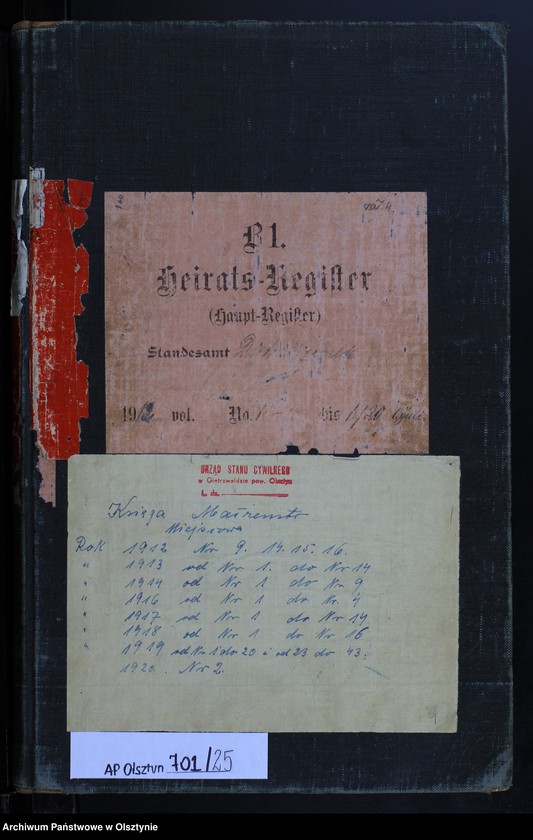 B 1.
Heirats-Register
(Haupt-Register)
Standesamt
19 vol. No. bis
URZĄD STANU CYWILNEGO
w Gietrzwałdzie pow. Olsztyn
L. dz.
Księga Małżeństw
Miejscowa
Rok 1912 Nr 9. 14. 15. 16.
" 1913 od Nr 1. do Nr 14
" 1914 od Nr 1 do Nr 9
" 1916 od Nr 1 do Nr. 4
" 1917 od Nr 1 do Nr 14
" 1918 od Nr 1 do Nr 16
" 1919 od Nr 1 do 20 i od 23 do 43.
1920. Nr 2.
AP Olsztyn 701/25
Archiwum Państwowe w Olsztynie